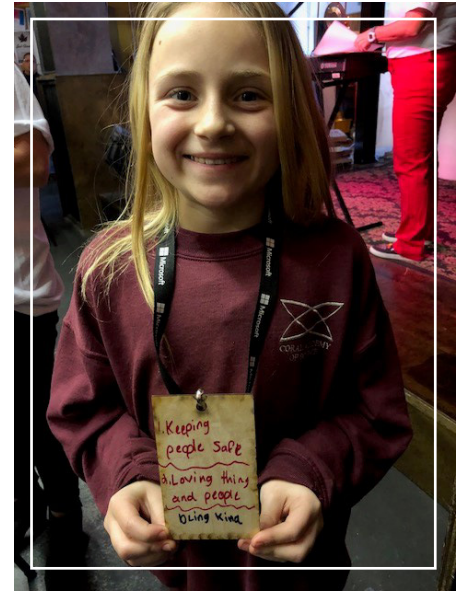 Microsoft
Microsoft
Microsoft
Microsoft
1. Keeping
people Safe
Loving thing
and people
being kind